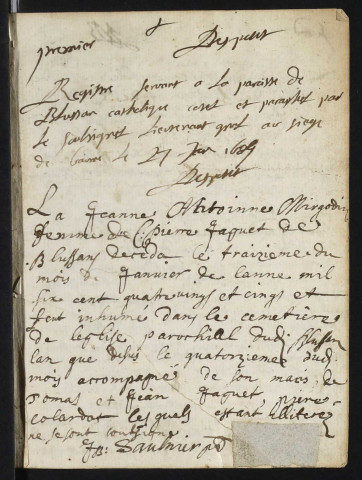 premier Despoutt
Registre servant a la paroisse de
Blussan catholique cotté et paraphé par
le soubsigné Lieutenant gnrl au siege
de le 27 1685
Despoutt
La Jeanne Anthoinne Mirgodin
femme de Pierre Jaquet de
Blussans deceda le traizieme du
mois de Janvier de lanne mil
six cent quatre vings et cings et
feut inhumé dans le cemetiere
de leglise parochill dud. Blussan
lan que desus le quatorzieme dud.
mois accompagné de son maris de
Tomas et Jean Jaquet pierre
colardot les quels estant illiterez
ne se sont soubsigne
JB: Saulnier